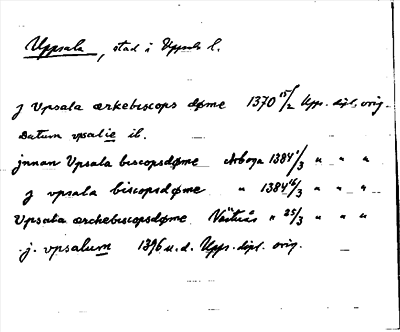 Uppsala, stad i Uppsala l.
j Vpsala ærkebiscops døme 1370 15/2 Upps. dipl. orig.
Datum vpsalie ib.
jnnan Vpsala biscopsdøme Arboga 1384 1/3 " " "
j vpsala biscopsdøme " 1384 16/3 " " "
Vpsala ærchebiscopsdøme Västerås " 25/3 " " "
j. vpsalum 1396 u.d. Upps. dipl. orig.